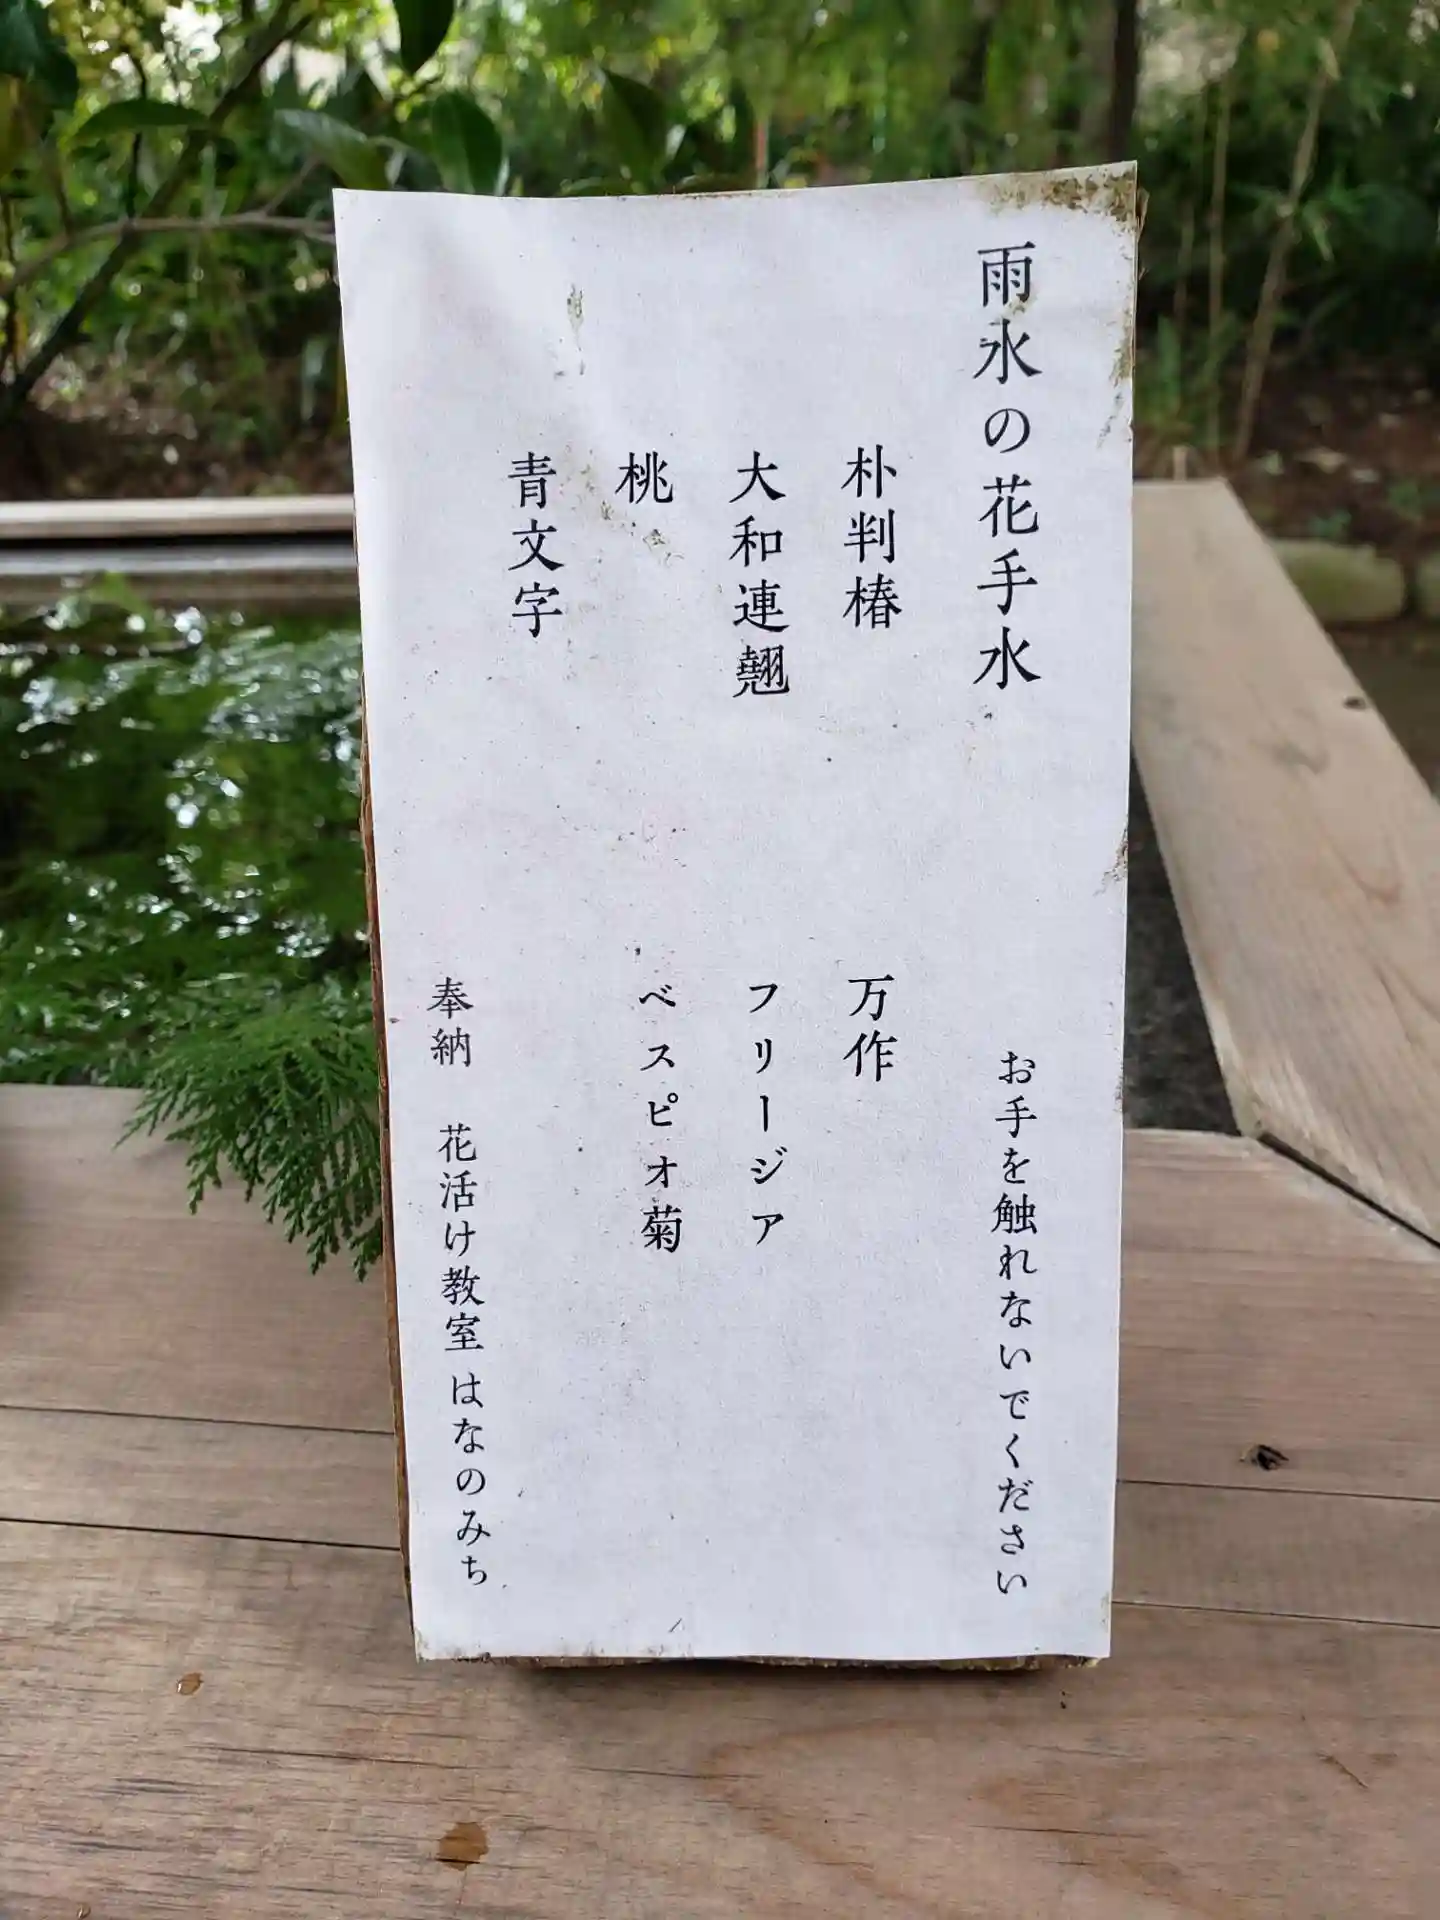 雨水の花手水
お手を触れないでください
朴判椿
万作
大和連翹
フリージア
桃
ベスピオ菊
青文字
奉納 花活け教室 はなのみち